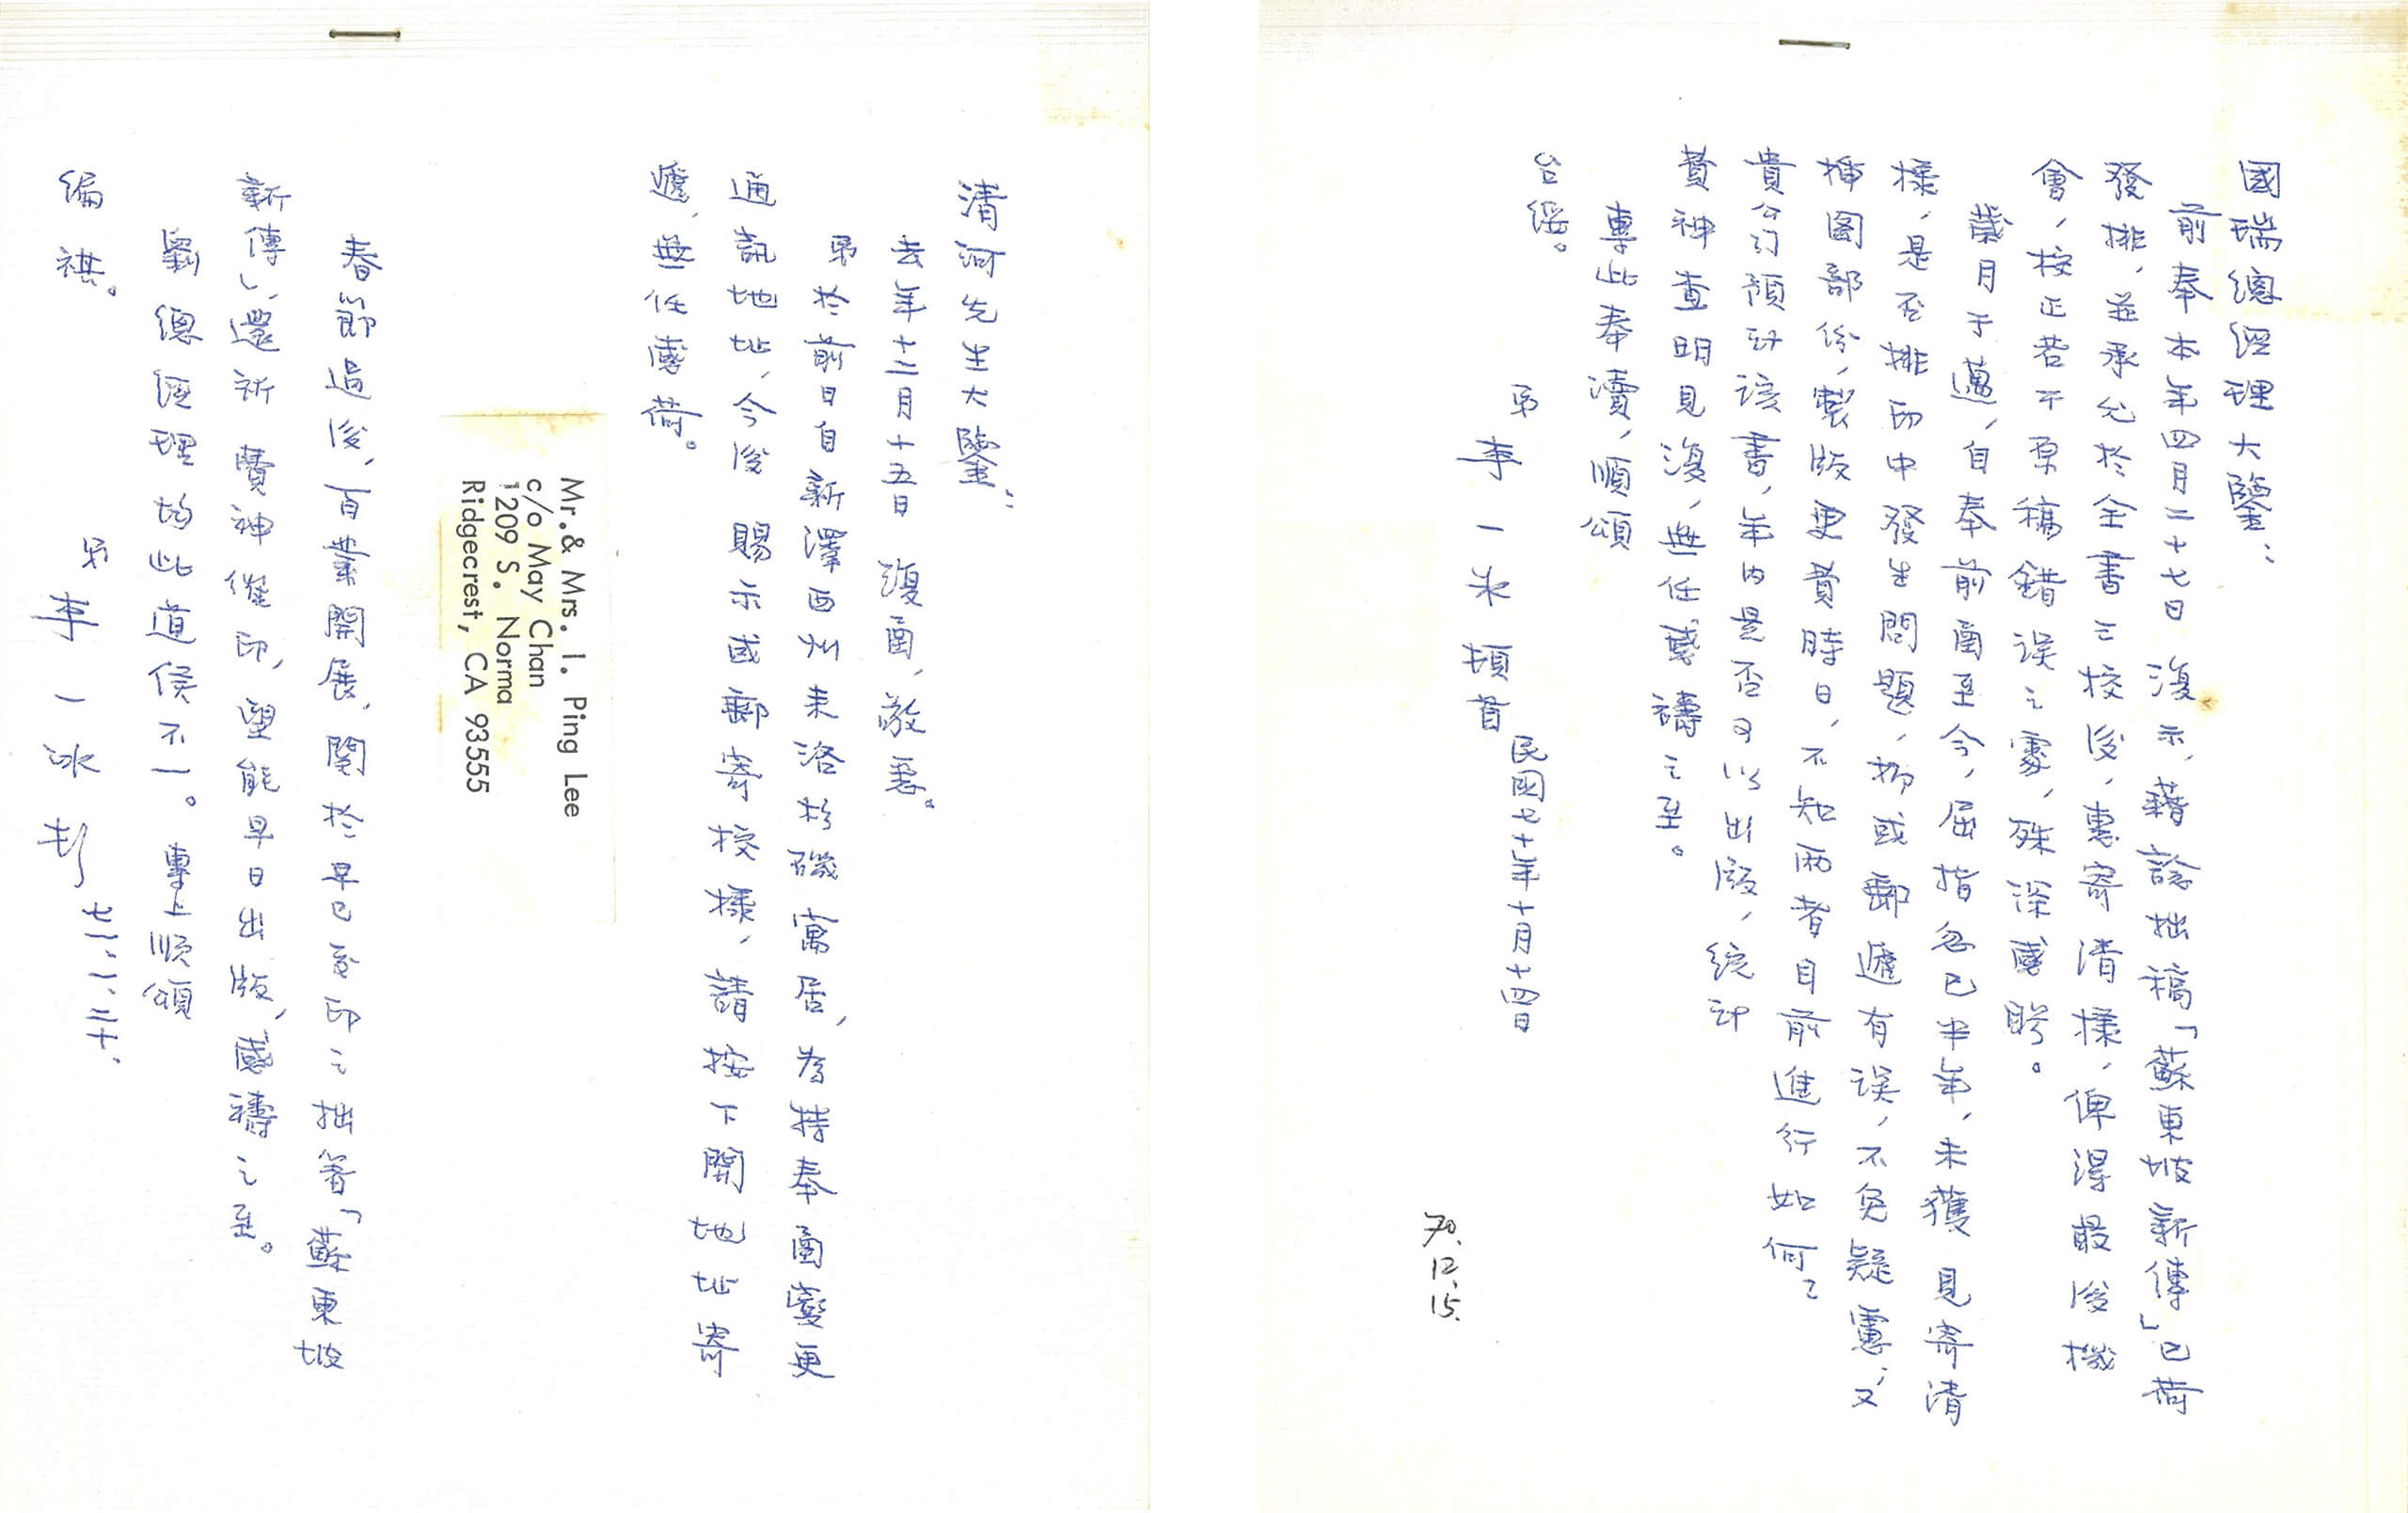 國瑞總經理大鑒：
前奉本年四月二十七日 復示，藉諗拙稿「蘇東坡新傳」已荷
發排，並承允於全書三校後，惠寄清樣，俾得最後機
會，校正若干原稿錯誤之處，殊深感盼。
歲月于邁，自奉前函至今，屈指忽已半年，未獲見寄清
樣，是否排印中發生問題，抑或郵遞有誤，不免疑慮；又
插圖部份，製版更費時日，不知兩者目前進行如何？
貴公司預計該書，年內是否可以出版，統計
費神查明見復，無任感禱之至。
專此奉瀆，順頌
台綏。
弟 李一冰 頓首 民國七十年十月十四日
70.12.15.
清河先生大鑒：
去年十二月十五日 復函，敬悉。
弟於前日自新澤西州來洛杉磯寓居，為特奉函變更
通訊地址，今後 賜示或郵寄校樣，請按下開地址寄
遞，無任感荷。
Mr.& Mrs. I. Ping Lee
c/o May Chan
1209 S. Norma
Ridgecrest, CA 93555
春節過後，百業開展，關於早已交印之拙著「蘇東坡
新傳」，還祈 費神催印，望能早日出版，感禱之至。
劉總經理均此道候不一。 專上順頌
編祺。
弟 李一冰 七一、一、二十、